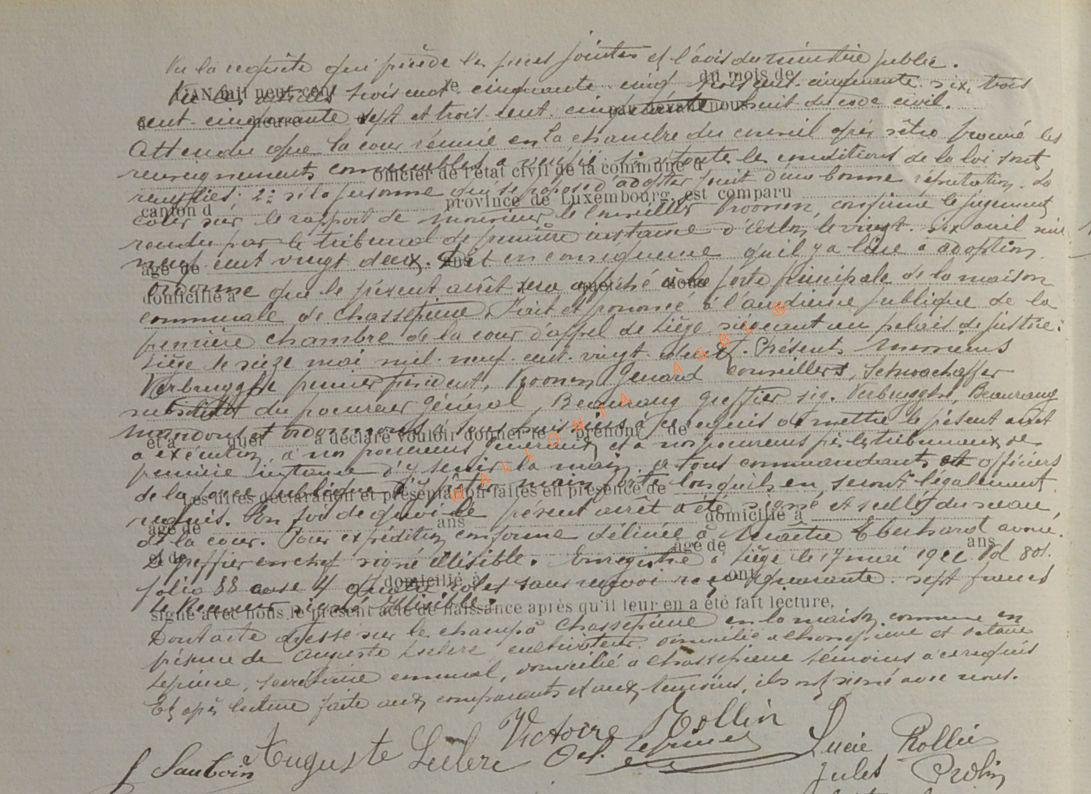 Vu la requête qui précède les pièces jointes et l'avis du ministère public.
L'AN mil neuf cent du mois de
Vu les articles trois cent cinquante cinq trois cent cinquante six, trois
cent cinquante sept et trois cent cinquante huit du code civil.
à heure par devant nous
Attendu que la cour réunie en la chambre du conseil après s'être procuré les
renseignements convenables a vérifié 1° si toutes les conditions de la loi sont
officier de l'état civil de la commune d
remplies; 2° si la personne qui se propose d'adopter jouit d'une bonne réputation. La
canton d province de Luxembourg, est comparu
cour sur le rapport de monsieur le conseiller Kroonen, confirme le jugement
rendu par le tribunal de première instance d'Arlon le vingt six avril mil
neuf cent vingt deux. Dit en conséquence qu'il y a lieu à adoption
âgé de ans
ordonne que le présent arrêt sera affiché à la porte principale de la maison
domicilié à
communale de Chassepierre. Fait et prononcé à l'audience publique de la
première chambre de la cour d'appel de Liège siégeant au palais de justice.
Liège le seize mai mil neuf cent vingt deux. Présents messieurs
Verbrugghe premier président, Kroonen, Genard conseillers, Schwachoffer
substitut du procureur Général, Beaurang greffier sig. Verbrugghe, Beaurang
mandons et ordonnons à tous huissiers à ce requis de mettre le présent arrêt
et à quel a déclaré vouloir donner le prénom de
à exécution, à nos procureurs généraux et à nos procureurs près les tribunaux de
première instance d'y tenir la main, et à tous commandants et officiers
de la force publique d'y prêter main forte lorsqu'ils en seront légalement
Lesdites déclaration et présentation faites en présence de
requis. En foi de quoi le présent arrêt a été signé et scellé du sceau
âgé de ans domicilié à
de la cour. Pour expédition conforme délivrée à Maître Eberhard avoué.
et de âgé de ans
Le greffier en chef signé illisible. Enregistré à Liège le 17 mai 1922 vol 801
folio 88 case 4 quatre rôles sans renvoi reçu quarante sept francs
domicilié à ont
le Receveur signé illisible.
signé avec nous le présent acte de naissance après qu'il leur en a été fait lecture.
Dont acte dressé sur le champ à Chassepierre en la maison commune en
présence de Auguste Leclerc cultivateur domicilié à Chassepierre et Octave
Lepine, secrétaire communal, domicilié à Chassepierre témoins à ce requis
Et après lecture faite aux comparants et aux témoins, ils ont signé avec nous.
Victoire Rollin
J Sauboin Auguste Leclerc Oct. Lepine Lucie Rollin
Jules